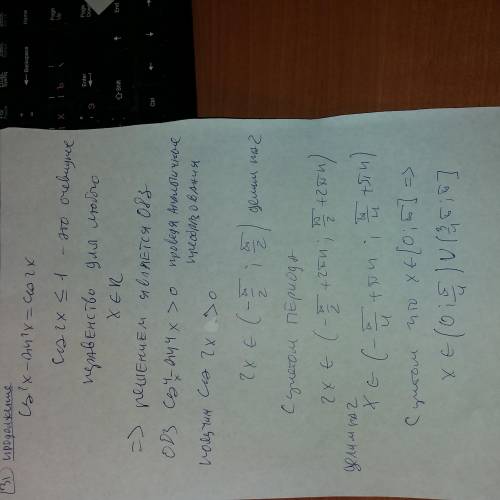 31 продолжение
cos²x-sin²x=cos2x
cos2x ≤ 1 - это очевидное
неравенство для любого
x∈R
=> решением является ОВЗ
ОВЗ cos⁴x-sin⁴x>0 проведя аналогичные
преобразования
получим cos2x>0
2x∈(-π/2; π/2) делим на 2
С учетом периода
2x∈(-π/2+2πn; π/2+2πn)
делим на 2
x∈(-π/4+πn; π/4+πn)
С учетом что x∈[0;π] =>
x∈[0;π/4)∪(3/4π;π]